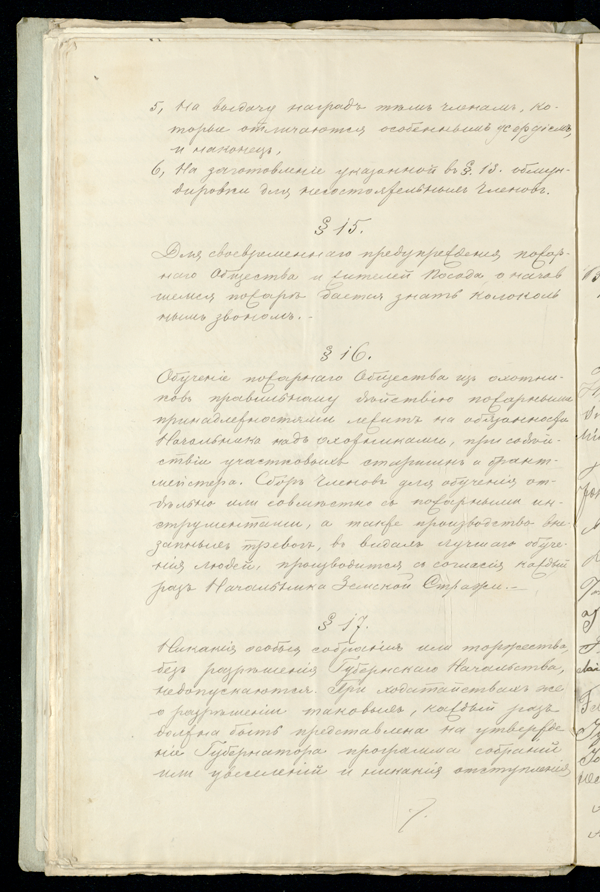 5, На выдачу наградъ тѣмъ членамъ, ко-
торые отличаются особеннымъ усердіемъ,
и наконецъ,
6, На заготовленіе указанной въ §. 13. обмун-
дировки для несостоятельныхъ членовъ.
§ 15.
Для своевременнаго предупрежденія пожар-
наго Общества и жителей Посада, о начав
шемся пожарѣ дается знать колоколь
нымъ звономъ.-
§ 16.
Обученіе пожарнаго Общества изъ охотни-
ковъ правильному дѣйствію пожарными
принадлежностями лежитъ на обязанности
Начальника надъ охотниками, при содѣй-
ствіи участковыхъ старшинъ и брант-
мейстера. Сборъ членовъ для обученія от-
дѣльно или совмѣстно съ пожарными ин-
струментами, а также производство вне
запныхъ тревогъ, въ видахъ лучшаго обуче-
нія людей, производится съ согласія каждый
разъ Начальника Земской Стражи.-
§ 17.
Никакія особыя собранія или торжества,
безъ разрѣшенія Губернскаго Начальства,
недопускаются. При ходатайствахъ же
о разрѣшеніи таковыхъ, каждый разъ
должна быть представлена на утвержде-
ніе Губернатора программа собраній
или увеселеній и никакія отступленія
7.